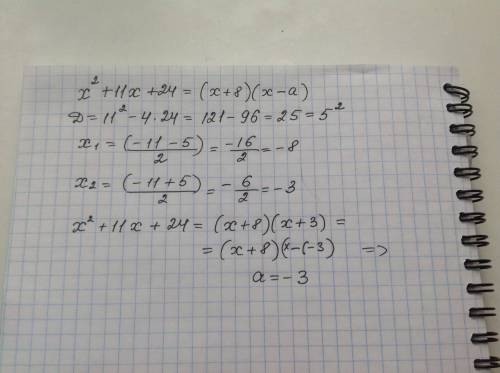 x² + 11x + 24 = (x+8)(x-a)
D = 11² - 4·24 = 121 - 96 = 25 = 5²
x₁ = (-11-5)/2 = -16/2 = -8
x₂ = (-11+5)/2 = -6/2 = -3
x² + 11x + 24 = (x+8)(x+3) =
= (x+8)(x-(-3) =>
a = -3